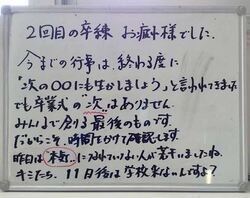 2回目の卒練 お疲れ様でした。
今までの行事は、終わる度に
「次の〇〇にも生かしましょう」と言われてきました
でも卒業式の"次"はありません。
みんなで創る最後のものです。
だからこそ、時間をかけて確認します。
昨日は 本気 になれていない人が若干いましたね。
キミたち、11日後は学校来ないんですよ?